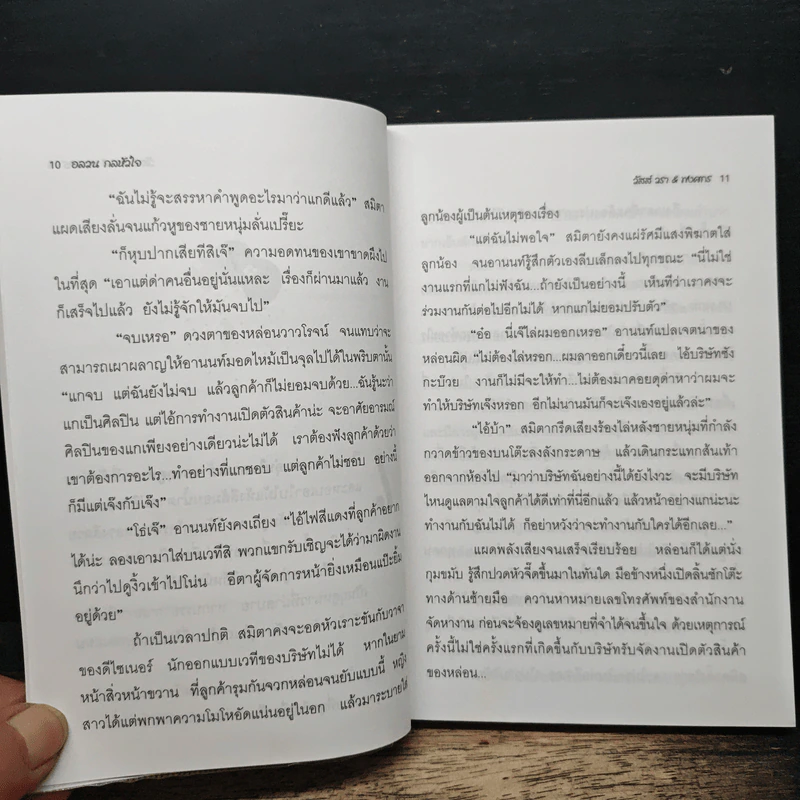 10 อลวน กลหัวใจ
“ฉันไม่รู้จะสรรหาคำพูดอะไรมาว่าแกดีแล้ว” สมิตา
แผดเสียงลั่นจนแก้วหูของชายหนุ่มลั่นเปรี๊ยะ
“ก็หุบปากเสียทีสิเจ๊” ความอดทนของเขาขาดผึงไป
ในที่สุด “เอาแต่ด่าคนอื่นอยู่นั่นแหละ เรื่องก็ผ่านมาแล้ว งาน
ก็เสร็จไปแล้ว ยังไม่รู้จักให้มันจบไป”
“จบเหรอ” ดวงตาของหล่อนวาวโรจน์ จนแทบว่าจะ
สามารถเผาผลาญให้อานนท์มอดไหม้เป็นจุลไปได้ในพริบตานั้น
“แกจบ แต่ฉันยังไม่จบ แล้วลูกค้าก็ไม่ยอมจบด้วย...ฉันรู้นะว่า
แกเป็นศิลปิน แต่ไอ้การทำงานเปิดตัวสินค้าน่ะ จะอาศัยอารมณ์
ศิลปินของแกเพียงอย่างเดียวน่ะไม่ได้ เราต้องฟังลูกค้าด้วยว่า
เขาต้องการอะไร...ทำอย่างที่แกชอบ แต่ลูกค้าไม่ชอบ อย่างนี้
ก็มีแต่เจ๊งกับเจ๊ง”
“โธ่เจ๊” อานนท์ยังคงเถียง “ไอ้ไฟสีแดงที่ลูกค้าอยาก
ได้น่ะ ลองเอามาใส่บนเวทีสิ พวกแขกรับเชิญจะได้ว่ามาผิดงาน
นึกว่าไปดูงิ้วเข้าไปโน่น อีตาผู้จัดการหน้ายิ่งเหมือนแป๊ะยิ้ม
อยู่ด้วย”
ถ้าเป็นเวลาปกติ สมิตาคงจะอดหัวเราะขันกับวาจา
ของดีไซเนอร์ นักออกแบบเวทีของบริษัทไม่ได้ หากในยาม
หน้าสิ่วหน้าขวาน ที่ลูกค้ารุมกันจวกหล่อนจนยับแบบนี้ หญิง
สาวได้แต่พกพาความโมโหอัดแน่นอยู่ในอก แล้วมาระบายใส่
11
ลูกน้องผู้เป็นต้นเหตุของเรื่อง
“แต่ฉันไม่พอใจ” สมิตายังคงแผ่รัศมีแสงพิฆาตใส่
ลูกน้อง จนอานนท์รู้สึกตัวเองลีบเล็กลงไปทุกขณะ “นี่ไม่ใช่
งานแรกที่แกไม่ฟังฉัน...ถ้ายังเป็นอย่างนี้ เห็นทีว่าเราคงจะ
ร่วมงานกันต่อไปอีกไม่ได้ หากแกไม่ยอมปรับตัว”
“อ๋อ นี่เจ๊ไล่ผมออกเหรอ” อานนท์แปลเจตนาของ
หล่อนผิด “ไม่ต้องไล่หรอก...ผมลาออกเดี๋ยวนี้เลย ไอ้บริษัทซัง
กะบ๊วย งานก็ไม่มีจะให้ทำ...ไม่ต้องมาคอยดุด่าหาว่าผมจะ
ทำให้บริษัทเจ๊งหรอก อีกไม่นานมันก็จะเจ๊งเองอยู่แล้วล่ะ”
“ไอ้บ้า” สมิตากรีดเสียงร้องไล่หลังชายหนุ่มที่กำลัง
กวาดข้าวของบนโต๊ะลงลังกระดาษ แล้วเดินกระแทกส้นเท้า
ออกจากห้องไป “มาว่าบริษัทฉันอย่างนี้ได้ยังไงวะ จะมีบริษัท
ไหนดูแลตามใจลูกค้าได้ดีเท่าที่นี่อีกแล้ว แล้วหน้าอย่างแกน่ะนะ
ทำงานกับฉันไม่ได้ ก็อย่าหวังว่าจะทำงานกับใครได้อีกเลย...”
แผดพลังเสียงจนเสร็จเรียบร้อย หล่อนก็ได้แต่นั่ง
กุมขมับ รู้สึกปวดหัวจี๊ดขึ้นมาในทันใด มือข้างหนึ่งเปิดลิ้นชักโต๊ะ
ทางด้านซ้ายมือ ควานหาหมายเลขโทรศัพท์ของสำนักงาน
จัดหางาน ก่อนจะจ้องดูเลขหมายที่จำได้จนขึ้นใจ ด้วยเหตุการณ์
ครั้งนี้ไม่ใช่ครั้งแรกที่เกิดขึ้นกับบริษัทรับจัดงานเปิดตัวสินค้า
ของหล่อน...